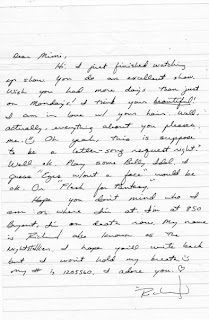 Dear Mimi,
Hi. I just finished watching
up show. You do an excellent show.
Wish you had more days than just
on Mondays! I think your beautiful! I
am in love w/ your hair. Well,
actually, everything about you please,
me. Oh yeah, this is suppose
to be a letter-song request, right?
Well ok. Play some Billy Idol. I
guess "Eyes w/out a face" would be
ok. Or Flesh for fantasy.
Hope you don't mind who I
am or where I'm at. I'm at 850
Bryant, I'm on death row. My name
is Richard also known as The
Nightstalker. I hope you'll write back
but I won't hold my breath
my # is 1205560. I adore you.
Richard